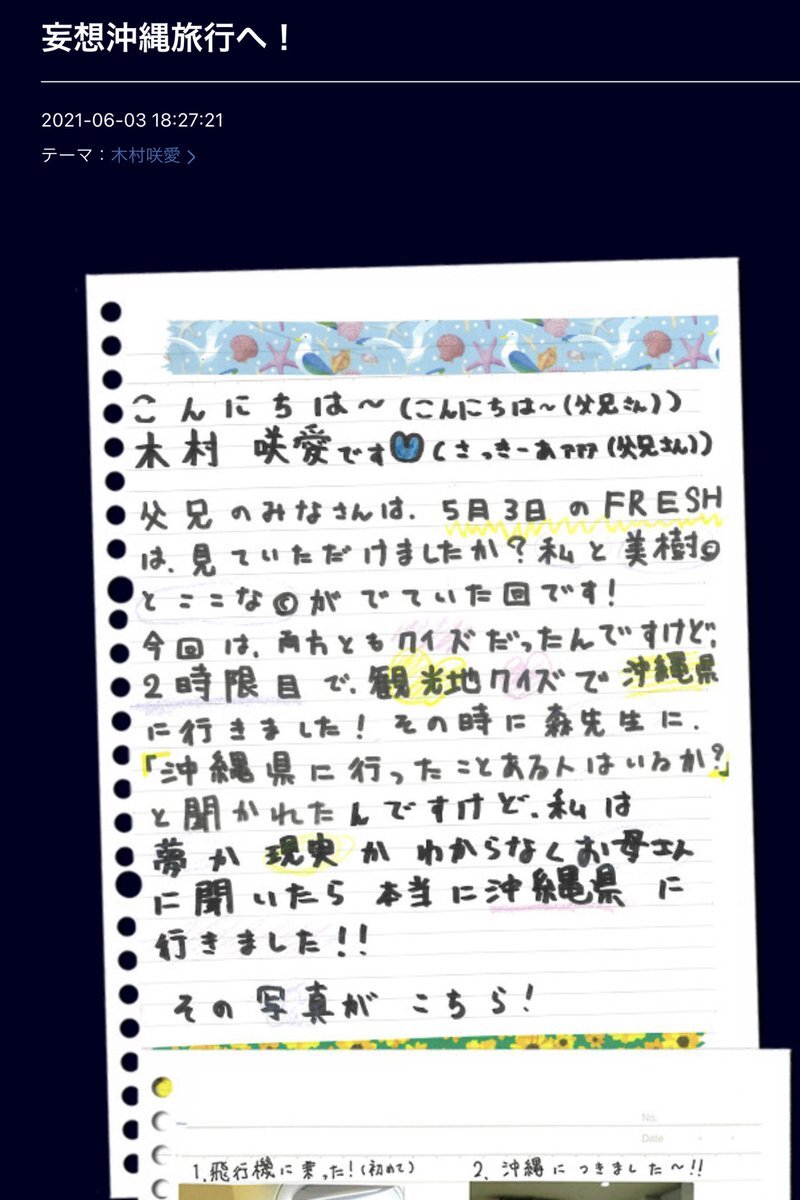 妄想沖縄旅行へ！
2021-06-03 18:27:21
テーマ：木村咲愛
こんにちは～(こんにちは～(父兄さん))
木村 咲愛です(さっきーあァァァ(父兄さん))
父兄のみなさんは、5月3日のFRESH
は、見ていただけましたか？私と美樹©
とここな©がでていた回です！
今回は、両方ともクイズだったんですけど、
2時限目で、観光地クイズで沖縄県
に行きました！その時に森先生に、
「沖縄県に行ったことある人はいるか？」
と聞かれたんですけど、私は
夢か現実かわからなくお母さん
に聞いたら本当に沖縄県に
行きました！！
その写真がこちら！
No.
Date
1.飛行機に乗った！(初めて)
2.沖縄につきました～!!